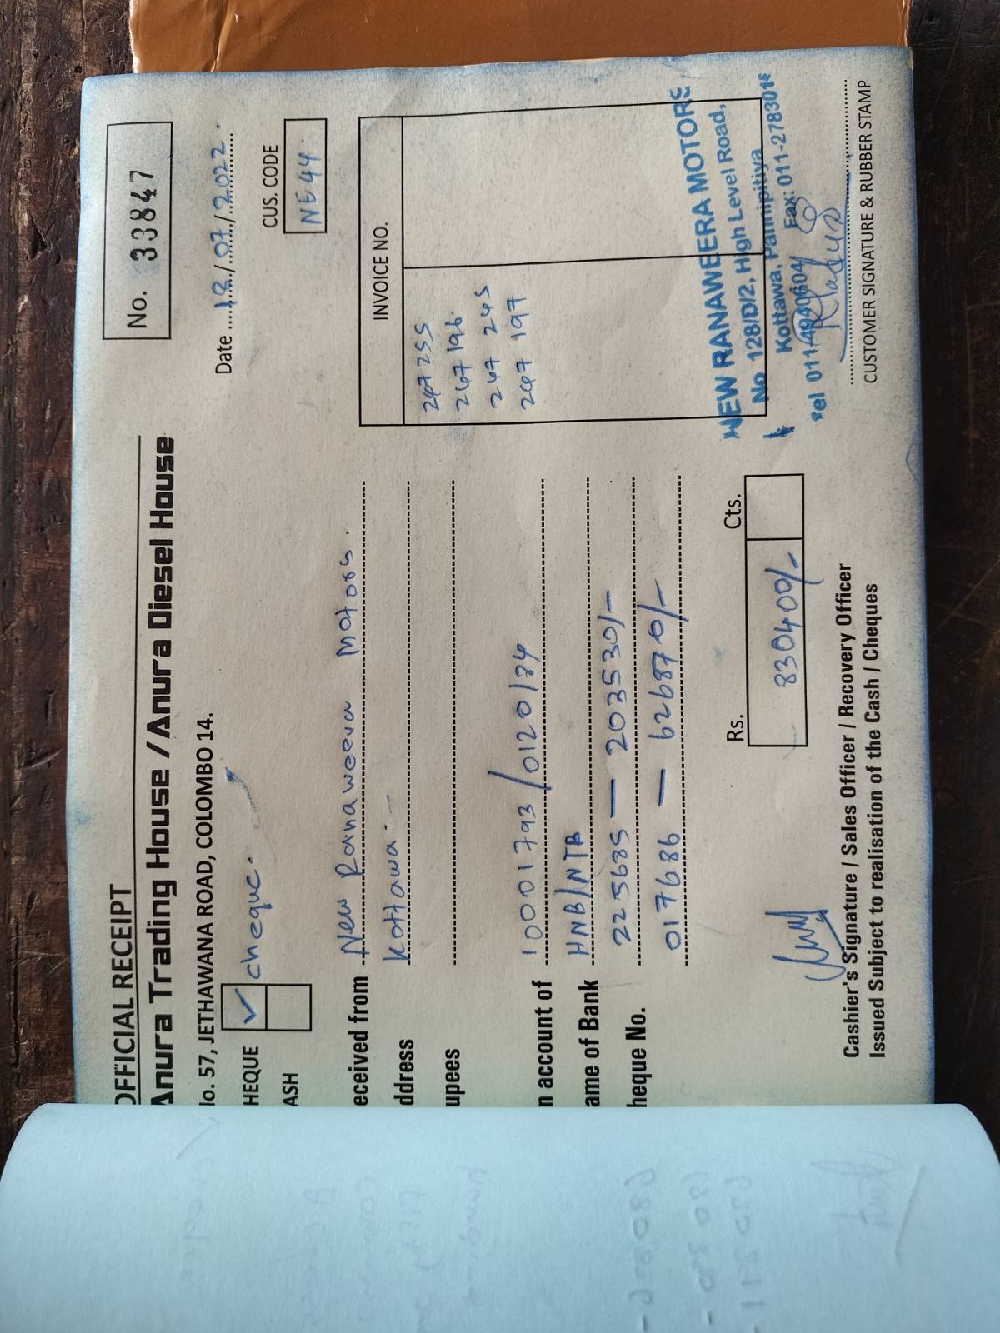 OFFICIAL RECEIPT
No. 33847
Anura Trading House / Anura Diesel House
No. 57, JETHAWANA ROAD, COLOMBO 14.
Date 18/07/2022
HEQUE ✓ cheque.
ASH
CUS. CODE
NE44
eceived from New Ranaweera Motors.
ddress Kottawa.
upees
n account of 10001793/0120174
ame of Bank HNB/NTB
heque No. 225685 — 203530/-
017686 — 626870/-
INVOICE NO.
247255
247196.
247 245
247 197
Rs. Cts.
830400/-
NEW RANAWEERA MOTORS
No 128/D/2, High Level Road,
Kottawa, Pannipitiya
Tel 011-4940604 Fax: 011-2783016
Cashier's Signature / Sales Officer / Recovery Officer
CUSTOMER SIGNATURE & RUBBER STAMP
Issued Subject to realisation of the Cash / Cheques